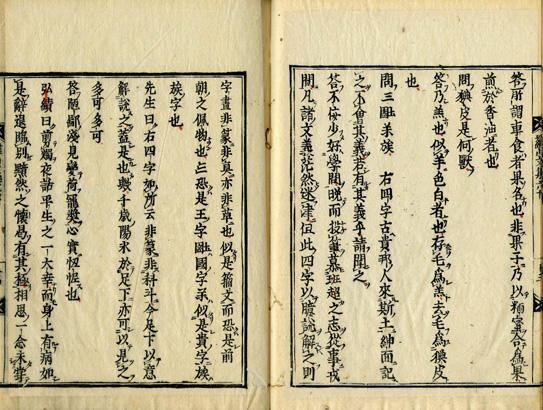 答所謂車食者果名也非果子乃以麵蜜合爲果
煎於香油者也
問㹮皮是何獸
答乃羔也似羊色白者也存毛爲羔去毛爲㹮皮
也
問三國系族 右四字古貴邦人來斯土紳面記
之不會其義若有其義乎請聞之
答不佞少好學問晚而投筆慕班超之志從事戎
間凡諸文義茫然迷津但此四字以臆說解之則
字畫非篆非眞亦非草也似是籀文而恐是前
朝之佩物也三恐是王字國國字系似是貴字族
族字也
先生曰右四字如所云非篆非科斗今足下以意
解說之蓋是也數千歲陽氷於足下亦可以見之
多可多可
答陋鄙淺見豈荷寵奬心實恧恧也
弘績曰前燭夜話平生之一大幸而身上有病如
是辭退臨別黯然之懷曷有其極相思一念未嘗